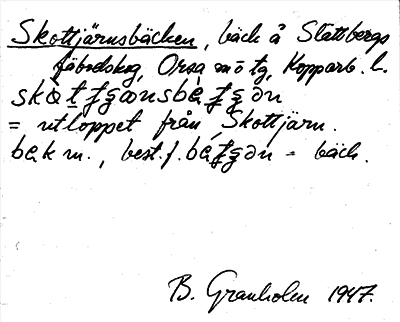 Skottjärnsbäcken, bäck å Stättbergs
fäbodskog, Orsa sn o tg, Kopparb. l.
= utloppet från Skottjärn.
bæk m., best. f. - bäck.
B. Granholm 1947.